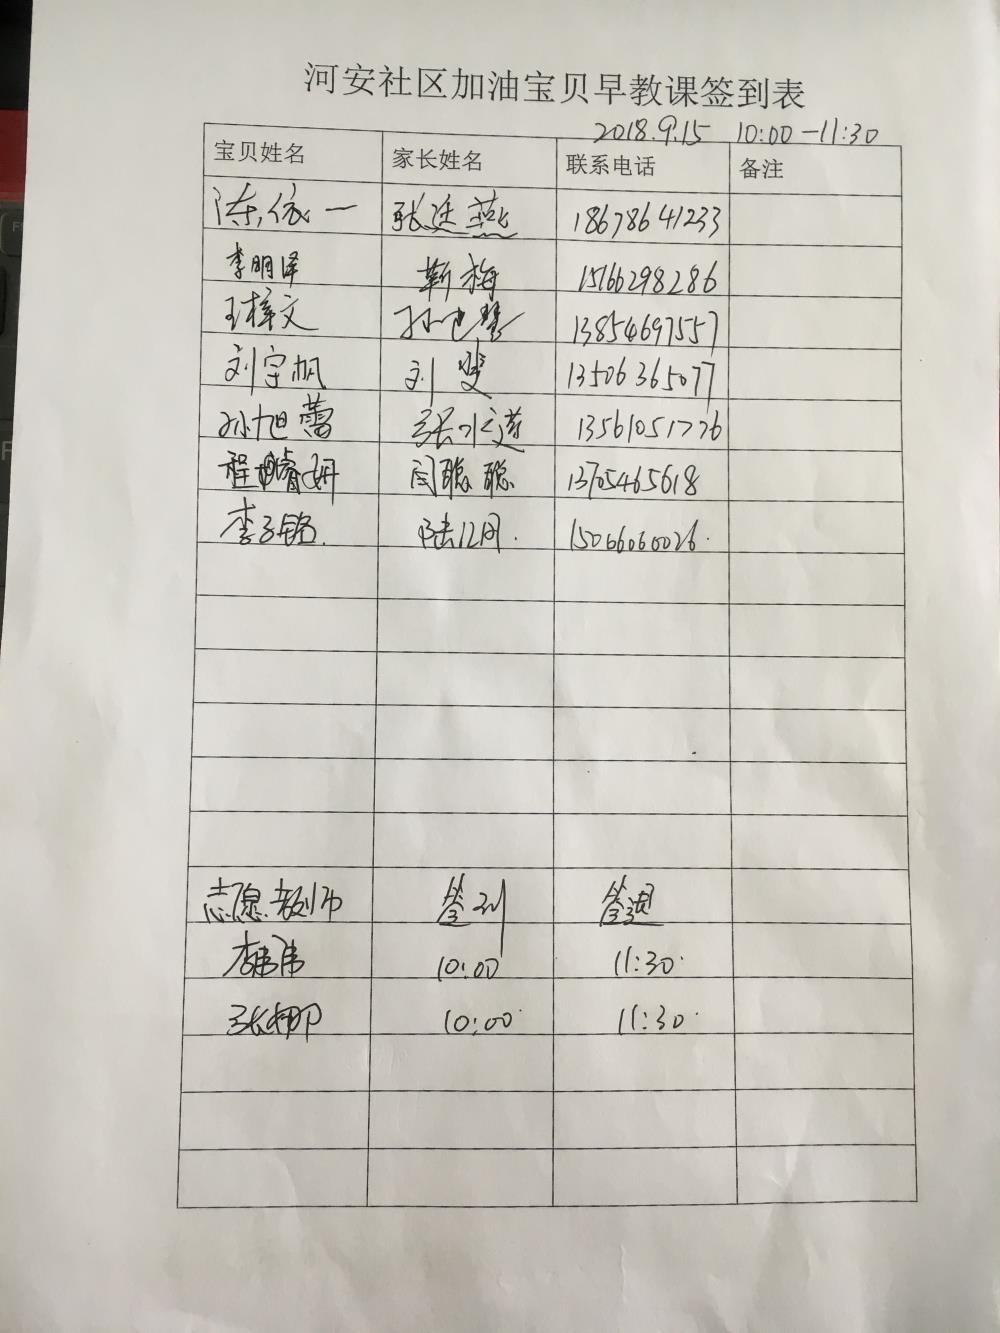 河安社区加油宝贝早教课签到表
2018.9.15 10:00-11:30
宝贝姓名 家长姓名 联系电话 备注
陈依一 张廷燕 18678641233
李明泽 靳梅 15166298286
王梓文 13854697557
刘宇帆 刘斐 13506365077
孙旭蕾 张水莲 13561051776
程睿妍 闫聪聪 13705465618
李子铭 15066060026.
志愿教师 签到 签退
李伟 10:00 11:30.
张娜 10:00. 11:30.